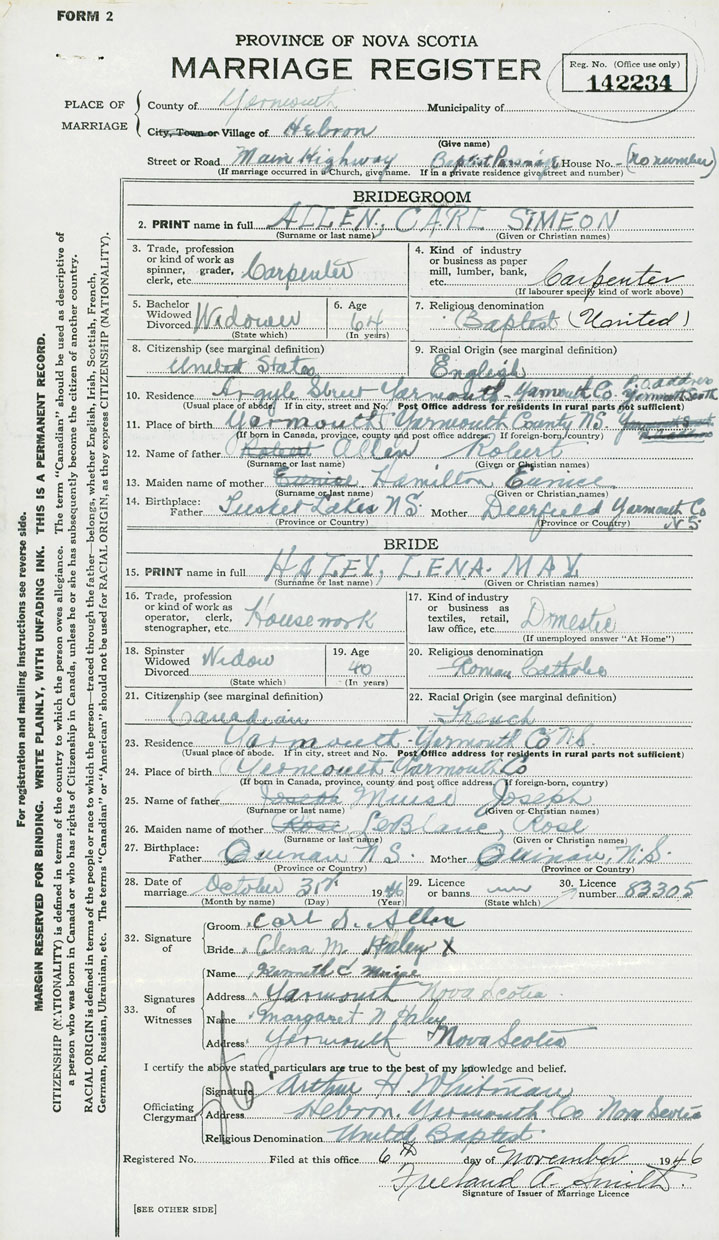 FORM 2
PROVINCE OF NOVA SCOTIA
MARRIAGE REGISTER
Reg. No. (Office use only)
142234
PLACE OF MARRIAGE
County of Yarmouth Municipality of
City, Town or Village of Hebron
(Give name)
Street or Road Main Highway Baptist Parsonage House No. - (no number)
(If marriage occurred in a Church, give name. If in a private residence give street and number)
BRIDEGROOM
2. PRINT name in full ALLEN, CARL SIMEON
(Surname or last name) (Given or Christian names)
3. Trade, profession or kind of work as spinner, grader, clerk, etc. Carpenter
4. Kind of industry or business as paper mill, lumber, bank, etc. Carpenter
(If labourer specify kind of work above)
5. Bachelor Widowed Divorced Widower
(State which)
6. Age 64
(In years)
7. Religious denomination Baptist (United)
8. Citizenship (see marginal definition) United States
9. Racial Origin (see marginal definition) English
10. Residence Argyle Street Yarmouth - Yarmouth Co. P.O. address Yarmouth South
(Usual place of abode. If in city, street and No. Post Office address for residents in rural parts not sufficient)
11. Place of birth Yarmouth Yarmouth County N.S.
(If born in Canada, province, county and post office address. If foreign-born, country)
12. Name of father Robert Allen Robert
(Surname or last name) (Given or Christian names)
13. Maiden name of mother Eunice Hamilton Eunice
(Surname or last name) (Given or Christian names)
14. Birthplace: Father Tusket Lakes N.S. Mother Deerfield Yarmouth Co N.S.
(Province or Country) (Province or Country)
BRIDE
15. PRINT name in full HALEY, LENA MAY
(Surname or last name) (Given or Christian names)
16. Trade, profession or kind of work as operator, clerk, stenographer, etc. Housework
17. Kind of industry or business as textiles, retail, law office, etc. Domestic
(If unemployed answer "At Home")
18. Spinster Widowed Divorced Widow
(State which)
19. Age 40
(In years)
20. Religious denomination Roman Catholic
21. Citizenship (see marginal definition) Canadian
22. Racial Origin (see marginal definition) French
23. Residence Yarmouth - Yarmouth Co N.S.
(Usual place of abode. If in city, street and No. Post Office address for residents in rural parts not sufficient)
24. Place of birth Yarmouth Yarmouth Co
(If born in Canada, province, county and post office address. If foreign-born, country)
25. Name of father Joseph Muise Joseph
(Surname or last name) (Given or Christian names)
26. Maiden name of mother Rose LeBlanc, Rose
(Surname or last name) (Given or Christian names)
27. Birthplace: Father Quinan N.S. Mother Quinan, N.S.
(Province or Country) (Province or Country)
28. Date of marriage October 31st 1946
(Month by name) (Day) (Year)
29. Licence or banns
(State which)
30. Licence number 83305
32. Signature of
Groom Carl S. Allen
Bride Elena M. Haley X
33. Signatures of Witnesses
Name Kenneth C Muise
Address Yarmouth Nova Scotia
Name Margaret N
Address Yarmouth Nova Scotia
I certify the above stated particulars are true to the best of my knowledge and belief.
Officiating Clergyman
Signature Arthur H. Whitman
Address Hebron, Yarmouth Co Nova Scotia
Religious Denomination United Baptist
Registered No. Filed at this office 6th day of November 1946
Freeland A. Smith
Signature of Issuer of Marriage Licence
[SEE OTHER SIDE]
For registration and mailing instructions see reverse side.
MARGIN RESERVED FOR BINDING. WRITE PLAINLY, WITH UNFADING INK. THIS IS A PERMANENT RECORD.
CITIZENSHIP (NATIONALITY) is defined in terms of the country to which the person owes allegiance. The term "Canadian" should be used as descriptive of
a person who was born in Canada or who has rights of Citizenship in Canada, unless he or she has subsequently become the citizen of another country.
RACIAL ORIGIN is defined in terms of the people or race to which the person—traced through the father—belongs, whether English, Irish, Scottish, French,
German, Russian, Ukrainian, etc. The terms "Canadian" or "American" should not be used for RACIAL ORIGIN, as they express CITIZENSHIP (NATIONALITY).